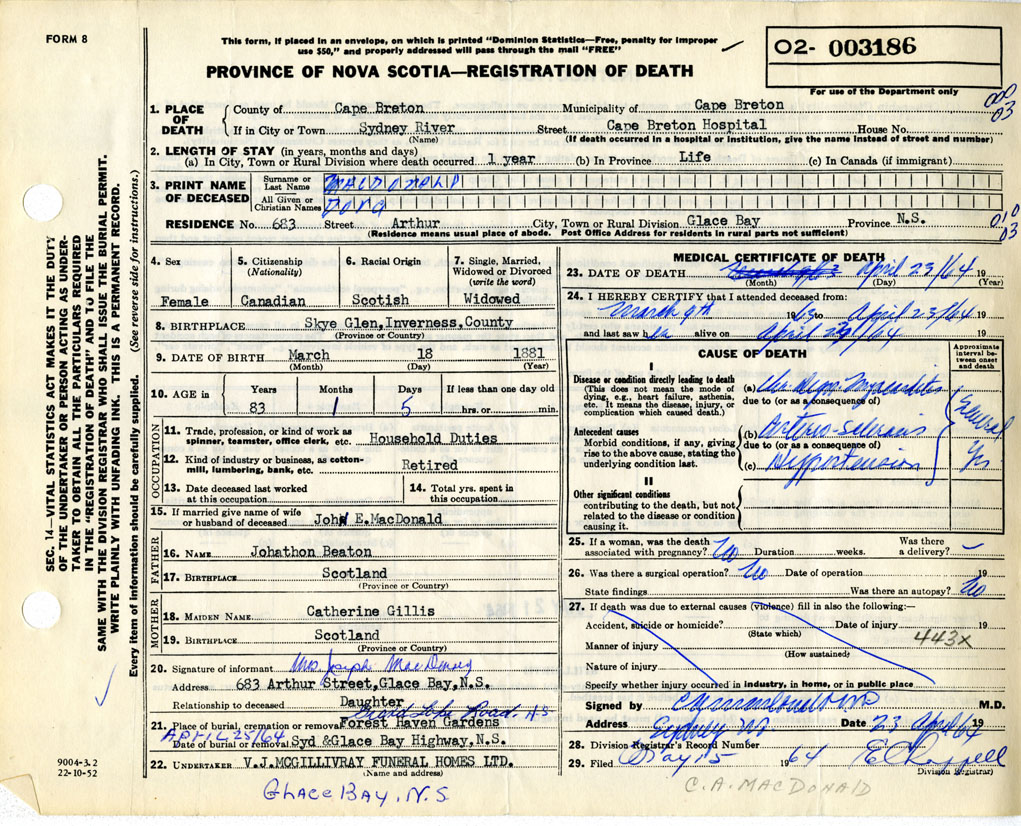 FORM 8
This form, if placed in an envelope, on which is printed "Dominion Statistics—Free, penalty for improper
use $50," and properly addressed will pass through the mail "FREE"
PROVINCE OF NOVA SCOTIA—REGISTRATION OF DEATH
02- 003186
For use of the Department only
000
03
1. PLACE OF DEATH County of Cape Breton Municipality of Cape Breton
If in City or Town Sydney River Street Cape Breton Hospital House No.
(Name) (If death occurred in a hospital or institution, give the name instead of street and number)
2. LENGTH OF STAY (in years, months and days)
(a) In City, Town or Rural Division where death occurred 1 year (b) In Province Life (c) In Canada (if immigrant)
3. PRINT NAME OF DECEASED
Surname or Last Name MACDONALD
All Given or Christian Names DORA
RESIDENCE No. 683 Street Arthur City, Town or Rural Division Glace Bay Province N.S.
(Residence means usual place of abode. Post Office Address for residents in rural parts not sufficient)
010
03
4. Sex Female
5. Citizenship (Nationality) Canadian
6. Racial Origin Scotish
7. Single, Married, Widowed or Divorced (write the word) Widowed
8. BIRTHPLACE Skye Glen,Inverness,County
(Province or Country)
9. DATE OF BIRTH March 18 1881
(Month) (Day) (Year)
10. AGE in Years Months Days If less than one day old
83 1 5 hrs. or min.
OCCUPATION
11. Trade, profession, or kind of work as spinner, teamster, office clerk, etc. Household Duties
12. Kind of industry or business, as cotton-mill, lumbering, bank, etc. Retired
13. Date deceased last worked at this occupation
14. Total yrs. spent in this occupation
15. If married give name of wife or husband of deceased John E.MacDonald
FATHER
16. NAME Johathon Beaton
17. BIRTHPLACE Scotland
(Province or Country)
MOTHER
18. MAIDEN NAME Catherine Gillis
19. BIRTHPLACE Scotland
(Province or Country)
20. Signature of informant Mrs Joseph
Address 683 Arthur Street,Glace Bay,N.S.
Relationship to deceased Daughter
Road. N.S
21. Place of burial, cremation or removal Forest Haven Gardens
APRIL 25/64
Date of burial or removal Syd &Glace Bay Highway,N.S.
22. UNDERTAKER V.J.MCGILLIVRAY FUNERAL HOMES LTD.
(Name and address)
GLACE BAY, N.S
MEDICAL CERTIFICATE OF DEATH
23. DATE OF DEATH April 23/64 19
(Month) (Day) (Year)
24. I HEREBY CERTIFY that I attended deceased from:
March 9th 1963 to April 23/64 19
and last saw her alive on April 23/64 19
CAUSE OF DEATH
Approximate interval between onset and death
I
Disease or condition directly leading to death
(This does not mean the mode of dying, e.g., heart failure, asthenia, etc. It means the disease, injury, or complication which caused death.)
(a) Myocarditis
due to (or as a consequence of)
Antecedent causes
Morbid conditions, if any, giving rise to the above cause, stating the underlying condition last.
(b) Arterio-sclerosis
due to (or as a consequence of)
(c) Hypertension
Several
Yrs
II
Other significant conditions
contributing to the death, but not related to the disease or condition causing it.
25. If a woman, was the death associated with pregnancy? No Duration weeks. Was there a delivery? –
26. Was there a surgical operation? No Date of operation 19
State findings Was there an autopsy? No
27. If death was due to external causes (violence) fill in also the following:—
Accident, suicide or homicide? Date of injury 19
(State which) 443X
Manner of injury
(How sustained)
Nature of injury
Specify whether injury occurred in industry, in home, or in public place
Signed by M.D.
Address Sydney Date 23 April/64 19
28. Division Registrar's Record Number
29. Filed May 15 1964 E Chappell
Division Registrar)
C.A. MACDONALD
SEC. 14—VITAL STATISTICS ACT MAKES IT THE DUTY
OF THE UNDERTAKER OR PERSON ACTING AS UNDER-
TAKER TO OBTAIN ALL THE PARTICULARS REQUIRED
IN THE "REGISTRATION OF DEATH" AND TO FILE THE
SAME WITH THE DIVISION REGISTRAR WHO SHALL ISSUE THE BURIAL PERMIT.
WRITE PLAINLY WITH UNFADING INK. THIS IS A PERMANENT RECORD.
Every item of information should be carefully supplied. (See reverse side for instructions.)
9004-3.2
22-10-52